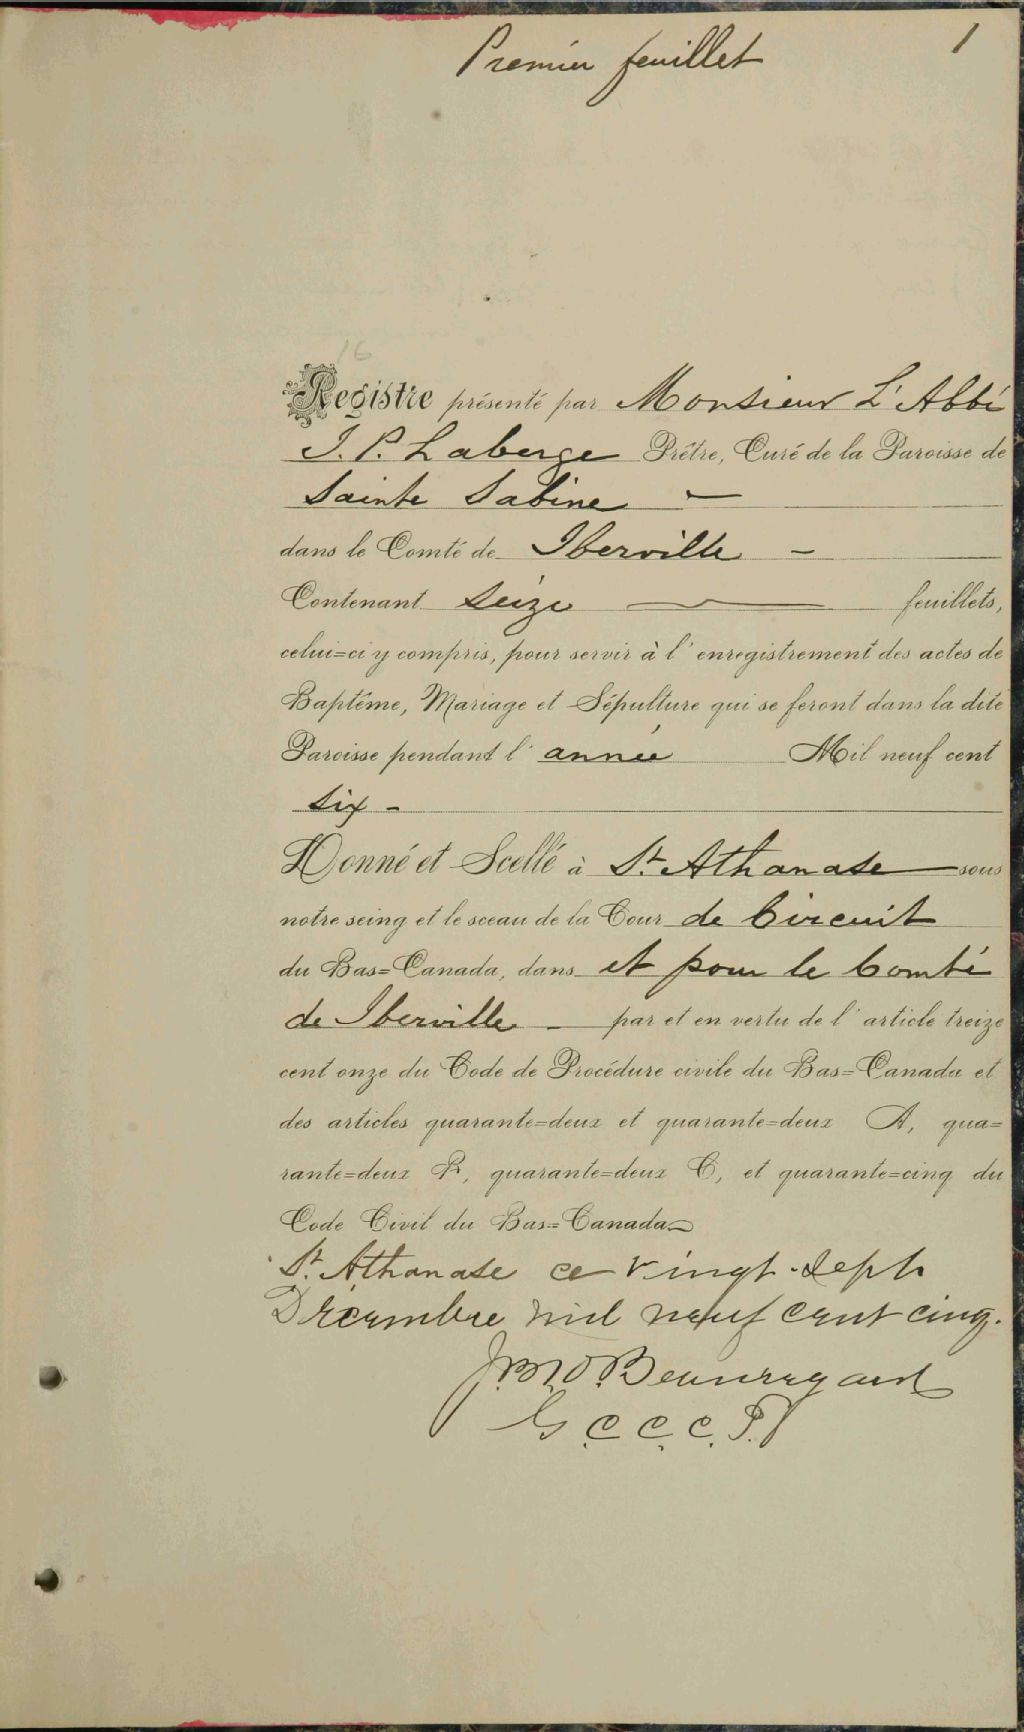 Premier feuillet
1
16
Registre présenté par Monsieur L'Abbé
J. P. Laberge Prêtre, Curé de la Paroisse de
Sainte Sabine -
dans le Comté de Iberville -
Contenant Seize feuillets,
celui=ci y compris, pour servir à l'enregistrement des actes de
Baptême, Mariage et Sépulture qui se feront dans la dite
Paroisse pendant l'année Mil neuf cent
six -
Donné et Scellé à St. Athanase sous
notre seing et le sceau de la Cour de Circuit
du Bas=Canada, dans et pour le Comté
de Iberville - par et en vertu de l'article treize
cent onze du Code de Procédure civile du Bas=Canada et
des articles quarante=deux et quarante=deux A, qua=
rante=deux B, quarante=deux C, et quarante=cinq du
Code Civil du Bas=Canada
St. Athanase ce vingt-sept
Décembre mil neuf cent cinq.
Beauregard
G. C. C. C. I.